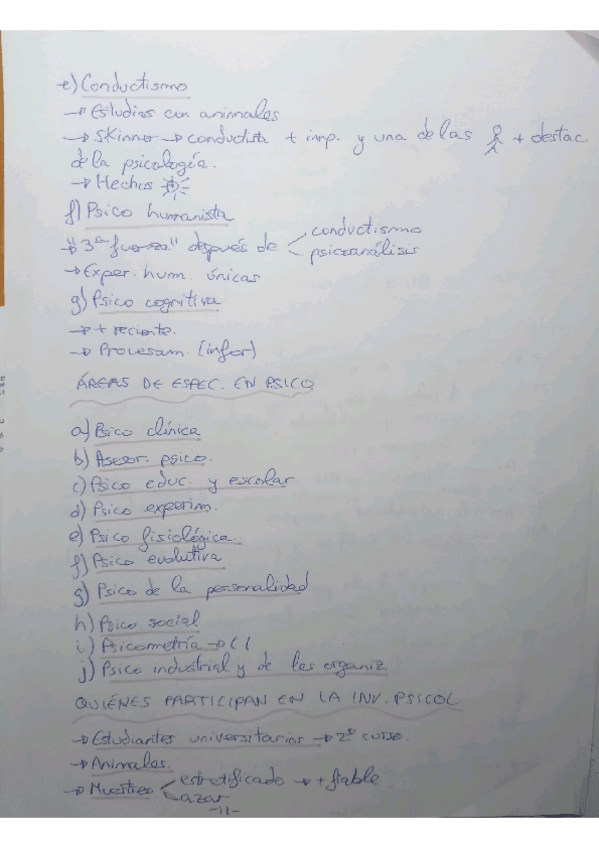 e) Conductismo
→ Estudios con animales
→ Skinner → conductista + imp. y una de las + destac
de la psicología.
→ Hechos
f) Psico humanista
→ "3ª fuerza" después de < conductismo
psicoanálisis
→ Exper. hum. únicas
g) Psico cognitiva
→ + reciente.
→ Procesam. (infor)
ÁREAS DE ESPEC. EN PSICO
a) Psico clínica
b) Asesor. psico.
c) Psico educ. y escolar
d) Psico experim.
e) Psico fisiológica.
f) Psico evolutiva
g) Psico de la personalidad
h) Psico social
i) Psicometría → CI
j) Psico industrial y de las organiz.
QUIÉNES PARTICIPAN EN LA INV. PSICOL
→ Estudiantes universitarios → 2º curso.
→ Animales.
→ Muestreo < estratificado → + fiable
azar
-11-